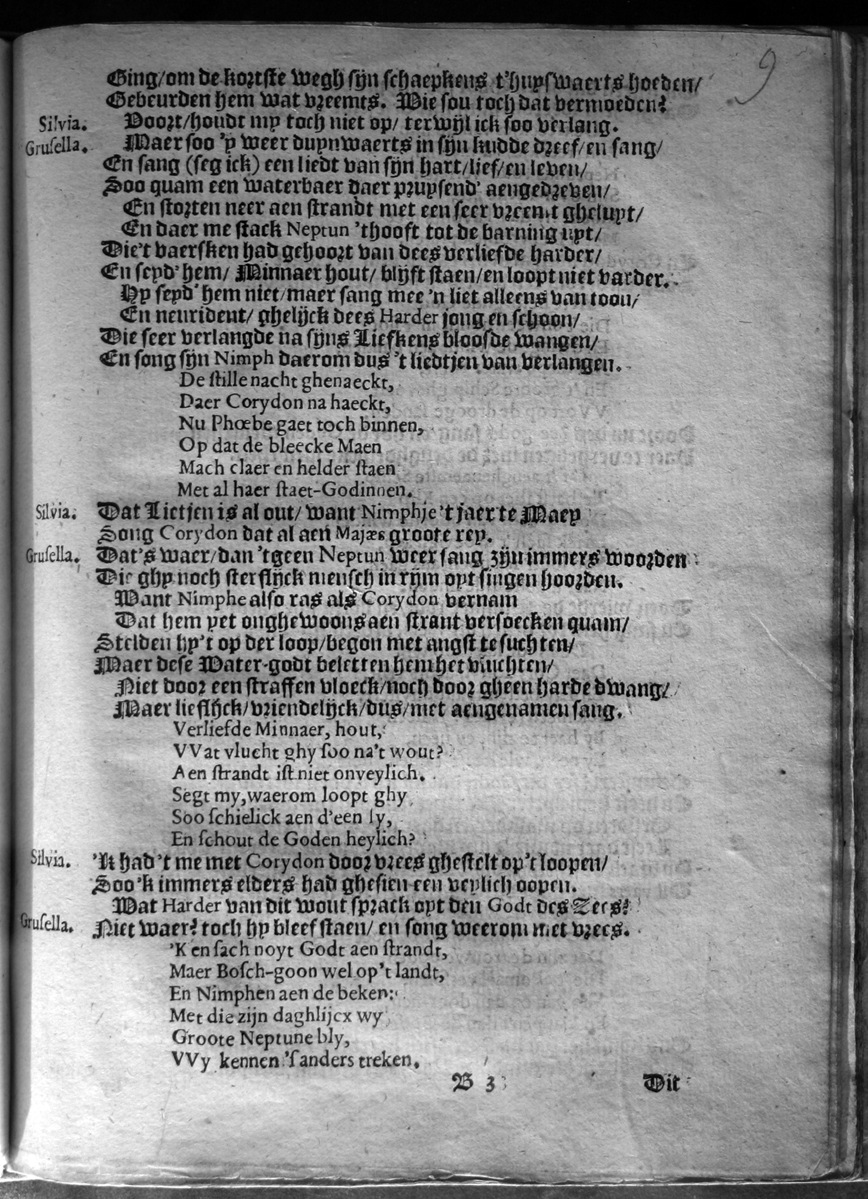 9
Ging/om de kortste wegh sijn schaepkens t'huyswaerts hoeden/
Gebeurden hem wat vreemts. Wie sou toch dat vermoeden?
Silvia. Voort/houdt my toch niet op/ terwijl ick soo verlang.
Grusella. Maer soo 'y weer duynwaerts in sijn kudde dreef/en sang/
En sang (seg ick) een liedt van sijn hart/lief/en leven/
Soo quam een waterbaer daer pruysend' aengedreven/
En storten neer aen strandt met een seer vreemt gheluyt/
En daer me stack Neptun 'thooft tot de barning uyt/
Die't vaersken had gehoort van dees verliefde harder/
En seyd' hem/ Minnaer hout/ blijft staen/en loopt niet varder.
Hy seyd' hem niet/maer sang mee 'n liet alleens van toon/
En neurident/ ghelijck dees Harder jong en schoon/
Die seer verlangde na sijns Liefkens bloosde wangen/
En song sijn Nimph daerom dus 't liedtjen van verlangen.
De stille nacht ghenaeckt,
Daer Corydon na haeckt,
Nu Phœbe gaet toch binnen,
Op dat de bleecke Maen
Mach claer en helder staen
Met al haer staet-Godinnen.
Silvia. Dat Lietjen is al out/ want Nimphje 't jaer te Maey
Song Corydon dat al aen Majæs groote rey.
Grusella. Dat's waer/dan 'tgeen Neptun weer sang zijn immers woorden
Die ghy noch sterflijck mensch in rijm oyt singen hoorden.
Want Nimphe also ras als Corydon vernam
Dat hem yet onghewoons aen strant versoecken quam/
Stelden hy't op der loop/begon met angst te suchten/
Maer dese Water-godt beletten hem het vluchten/
Niet door een straffen vloeck/noch door gheen harde dwang/
Maer lieflijck/vriendelijck/dus/met aengenamen sang.
Verliefde Minnaer, hout,
VVat vlucht ghy soo na't wout?
Aen strandt ist niet onveylich.
Segt my, waerom loopt ghy
Soo schielick aen d'een sy,
En schout de Goden heylich?
Silvia. 'K had 't me met Corydon door vrees ghestelt op't loopen/
Soo 'k immers elders had ghesien een veylich oopen.
Wat Harder van dit wout sprack oyt den Godt des Zees?
Grusella. Niet waer? toch hy bleef staen/ en song weerom met vrees.
'K en sach noyt Godt aen strandt,
Maer Bosch-goon wel op't landt,
En Nimphen aen de beken:
Met die zijn daghlijcx wy
Groote Neptune bly,
VVy kennen 's anders treken.
B 3 Dit